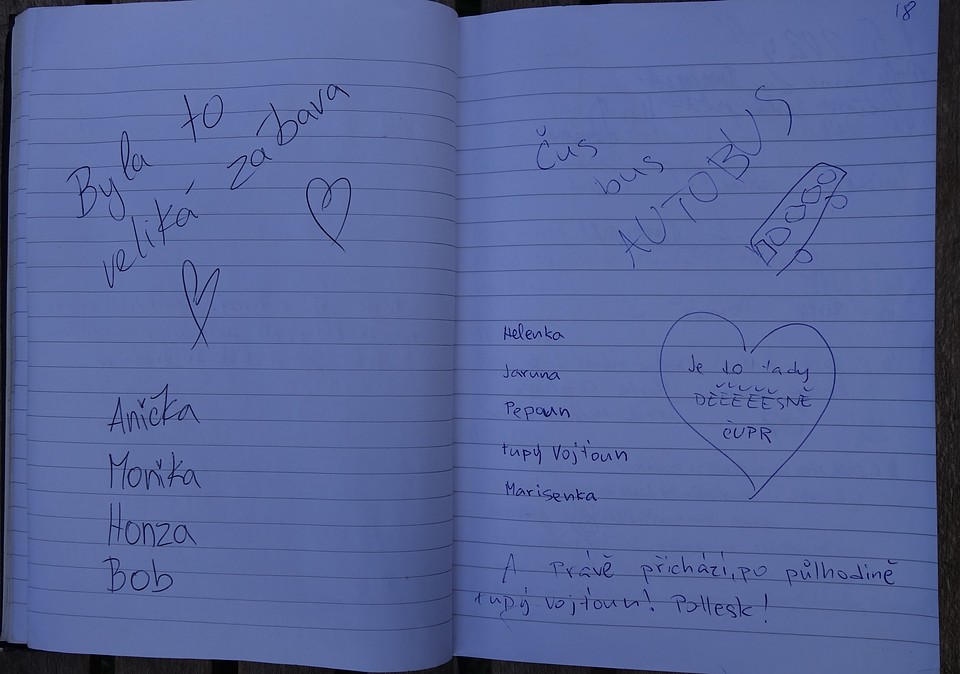 Byla to
veliká zábava
Anička
Monika
Honza
Bob
18
Čus
bus
AUTOBUS
Helenka
Jaruna
Pepoun
tupý Vojtoun
Marisenka
Je to tady
DĚĚĚĚĚSNĚ
ČUPR
A právě přichází, po půlhodině
tupý Vojtoun! Potlesk!